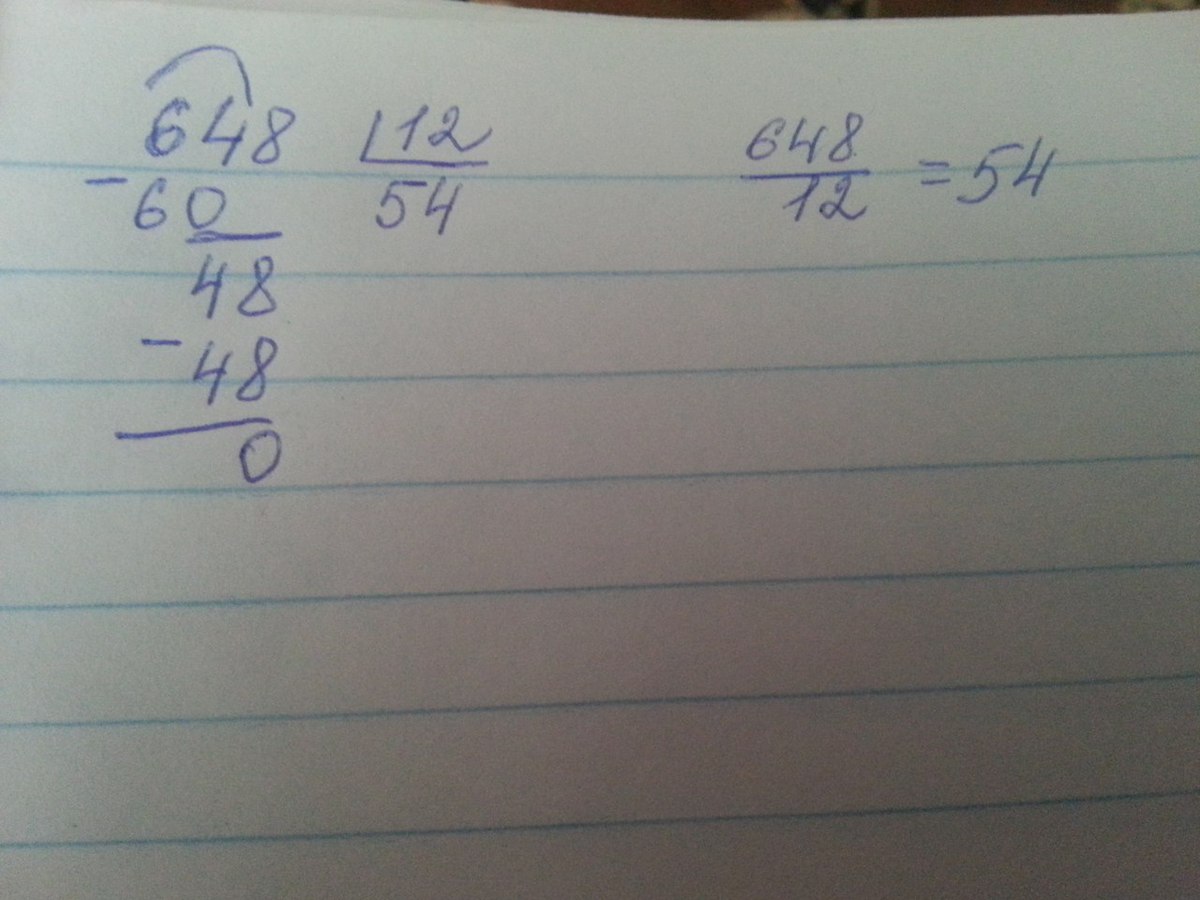 648 12
-60 54
48
-48
0
648
12 = 54